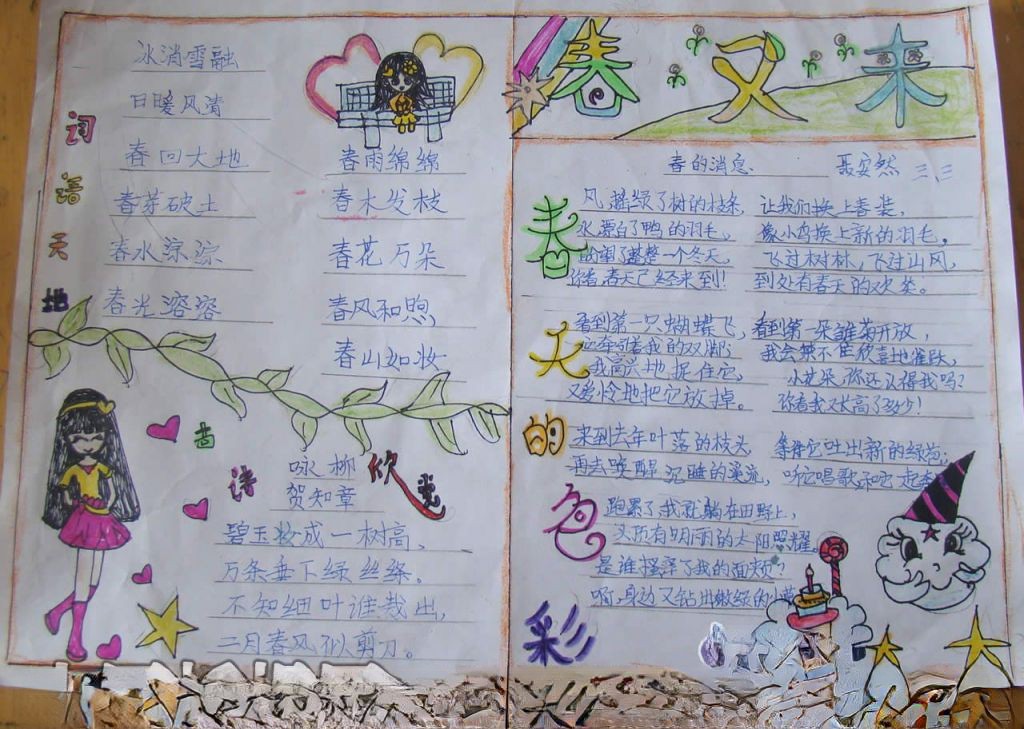 词语天地
冰消雪融
日暖风清
春回大地
春芽破土
春水淙淙
春光溶溶
春雨绵绵
春木发枝
春花万朵
春风和煦
春山如妆
古诗欣赏
咏柳
贺知章
碧玉妆成一树高，
万条垂下绿丝绦。
不知细叶谁裁出，
二月春风似剪刀。
春又来
春的消息 聂安然 三、三
春天的色彩
风，摇绿了树的枝条，
水漂白了鸭的羽毛，
盼望了整整一个冬天，
你看，春天已经来到！
让我们换上春装，
像小鸟换上新的羽毛，
飞过树林，飞过山风，
到处有春天的欢笑。
看到第一只蝴蝶飞，
它牵引着我的双脚；
我高兴地捉住它，
又爱怜地把它放掉。
看到第一朵雏菊开放，
我会禁不住欣喜地雀跃，
小花朵，你还认得我吗？
你看我又长高了多少！
来到去年叶落的枝头，
等待它吐出新的绿苞；
再去唤醒沉睡的溪流，
听它唱歌和它一起
跑累了我就躺在田野上，
头顶有明丽的太阳照耀。
是谁搔痒了我的面颊？
啊，身边又钻出嫩绿的小